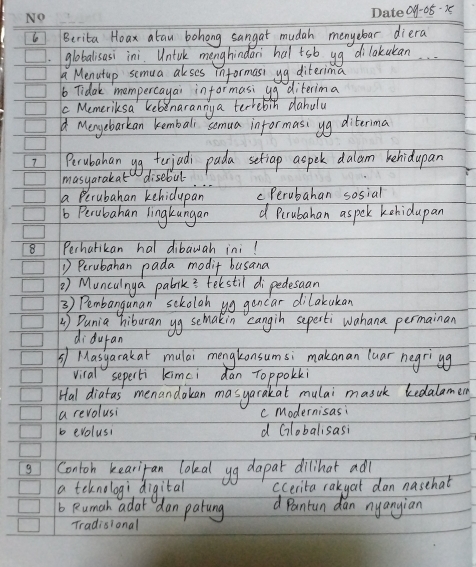 No Date 09-05-25
6 Berita Hoax atau bohong sangat mudah menyebar di era
globalisasi ini. Untuk menghindari hal tsb yg di lakukan ...
a Menutup semua akses informasi yg diterima
b Tidak mempercayai informasi yg diterima
c Memeriksa kebenarannya terlebih dahulu
d Menyebarkan kembali semua informasi yg diterima
7 Perubahan yg terjadi pada setiap aspek dalam kehidupan
masyarakat disebut ...
a Perubahan kehidupan c Perubahan sosial
b Perubahan lingkungan d Perubahan aspek kehidupan
8 Perhatikan hal dibawah ini !
1) Perubahan pada modif busana
2) Munculnya pabrik2 tekstil di pedesaan
3) Pembangunan sekolah yg gencar dilakukan
4) Dunia hiburan yg semakin cangih seperti wahana permainan
di dufan
5) Masyarakat mulai mengkonsumsi makanan luar negri yg
viral seperti kimci dan Toppokki
Hal diatas menandakan masyarakat mulai masuk kedalamern
a revolusi c Modernisasi
b evolusi d Globalisasi
9 Contoh kearifan lokal yg dapat dilihat adl
a teknologi digital c Cerita rakyat dan nasehat
b Rumah adat dan patung d Pantun dan nyanyian
Tradisional